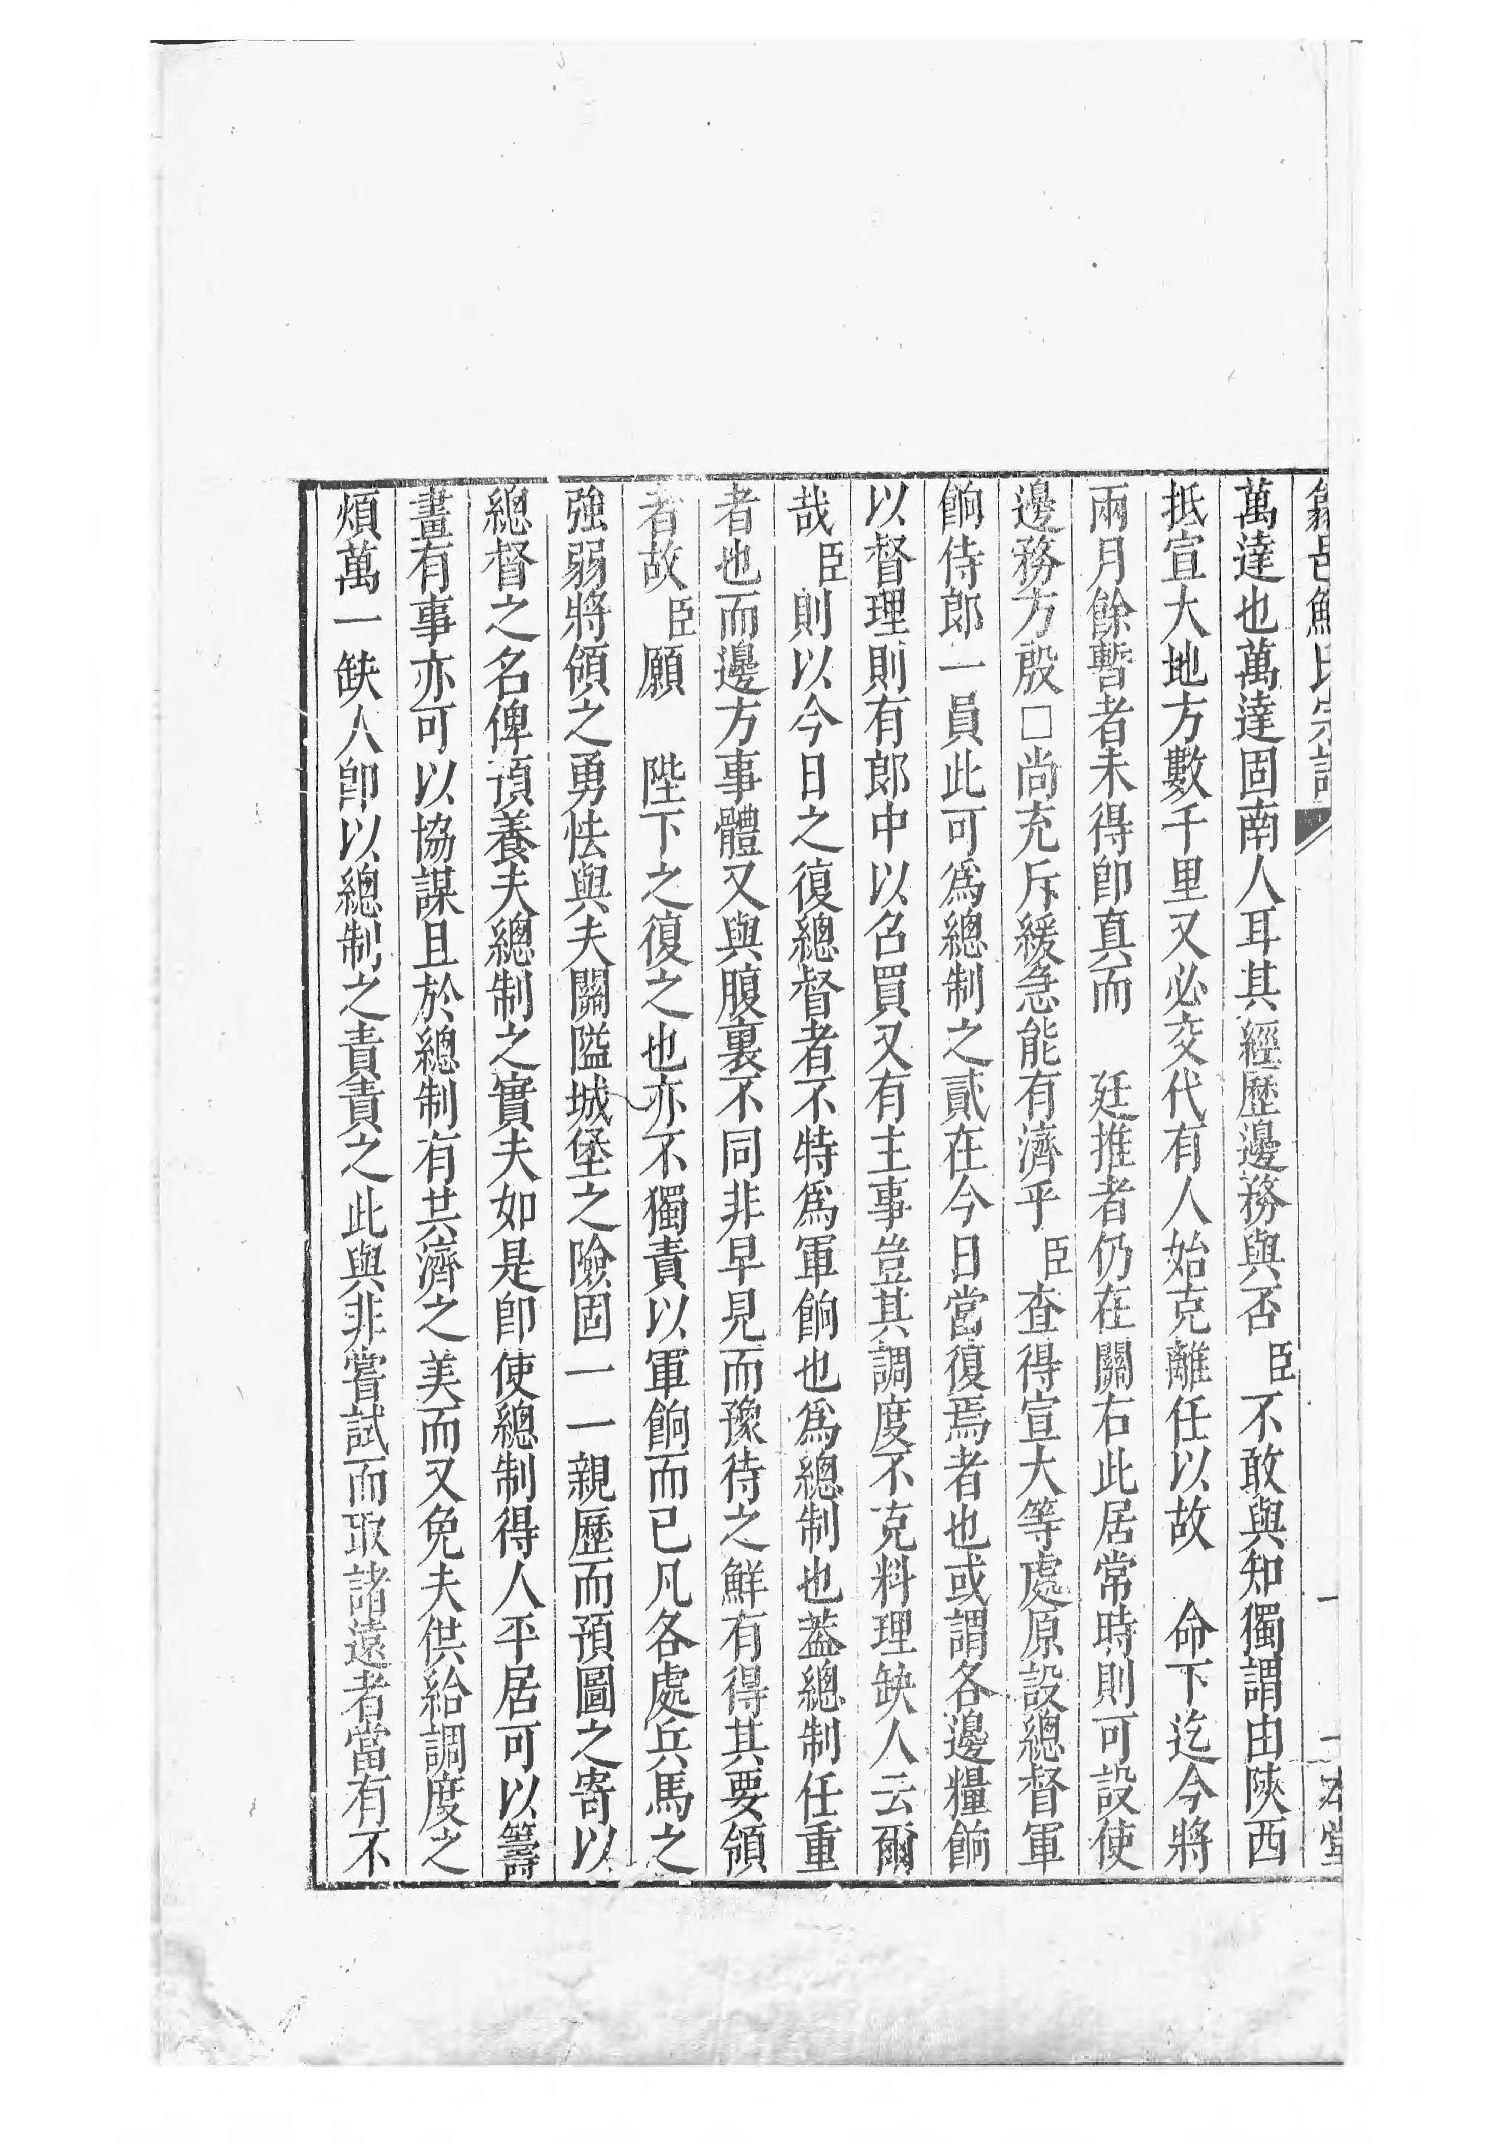 邑鮑氏宗譜
本堂
萬達也萬達固南人耳其經歷邊務與否臣不敢與知獨謂由陝西
抵宣大地方數千里又必交代有人始克離任以故　命下迄今將
兩月餘暫者未得卽真而　廷推者仍在關右此居常時則可設使
邊務方殷□尚充斥緩急能有濟乎臣查得宣大等處原設總督軍
餉侍郎一員此可爲總制之貳在今日當復焉者也或謂各邊糧餉
以督理則有郎中以召買又有主事豈其調度不克料理缺人云爾
哉臣則以今日之復總督者不特爲軍餉也爲總制也葢總制任重
者也而邊方事體又與腹裏不同非早見而豫待之鮮有得其要領
者故臣願　陛下之復之也亦不獨責以軍餉而已凡各處兵馬之
強弱將領之勇怯與夫關隘城堡之險固一一親歷而預圖之寄以
總督之名俾預養夫總制之實夫如是卽使總制得人平居可以籌
畫有事亦可以協謀且於總制有共濟之美而又免夫供給調度之
煩萬一缺人卽以總制之責責之此與非嘗試而取諸遠者當有不